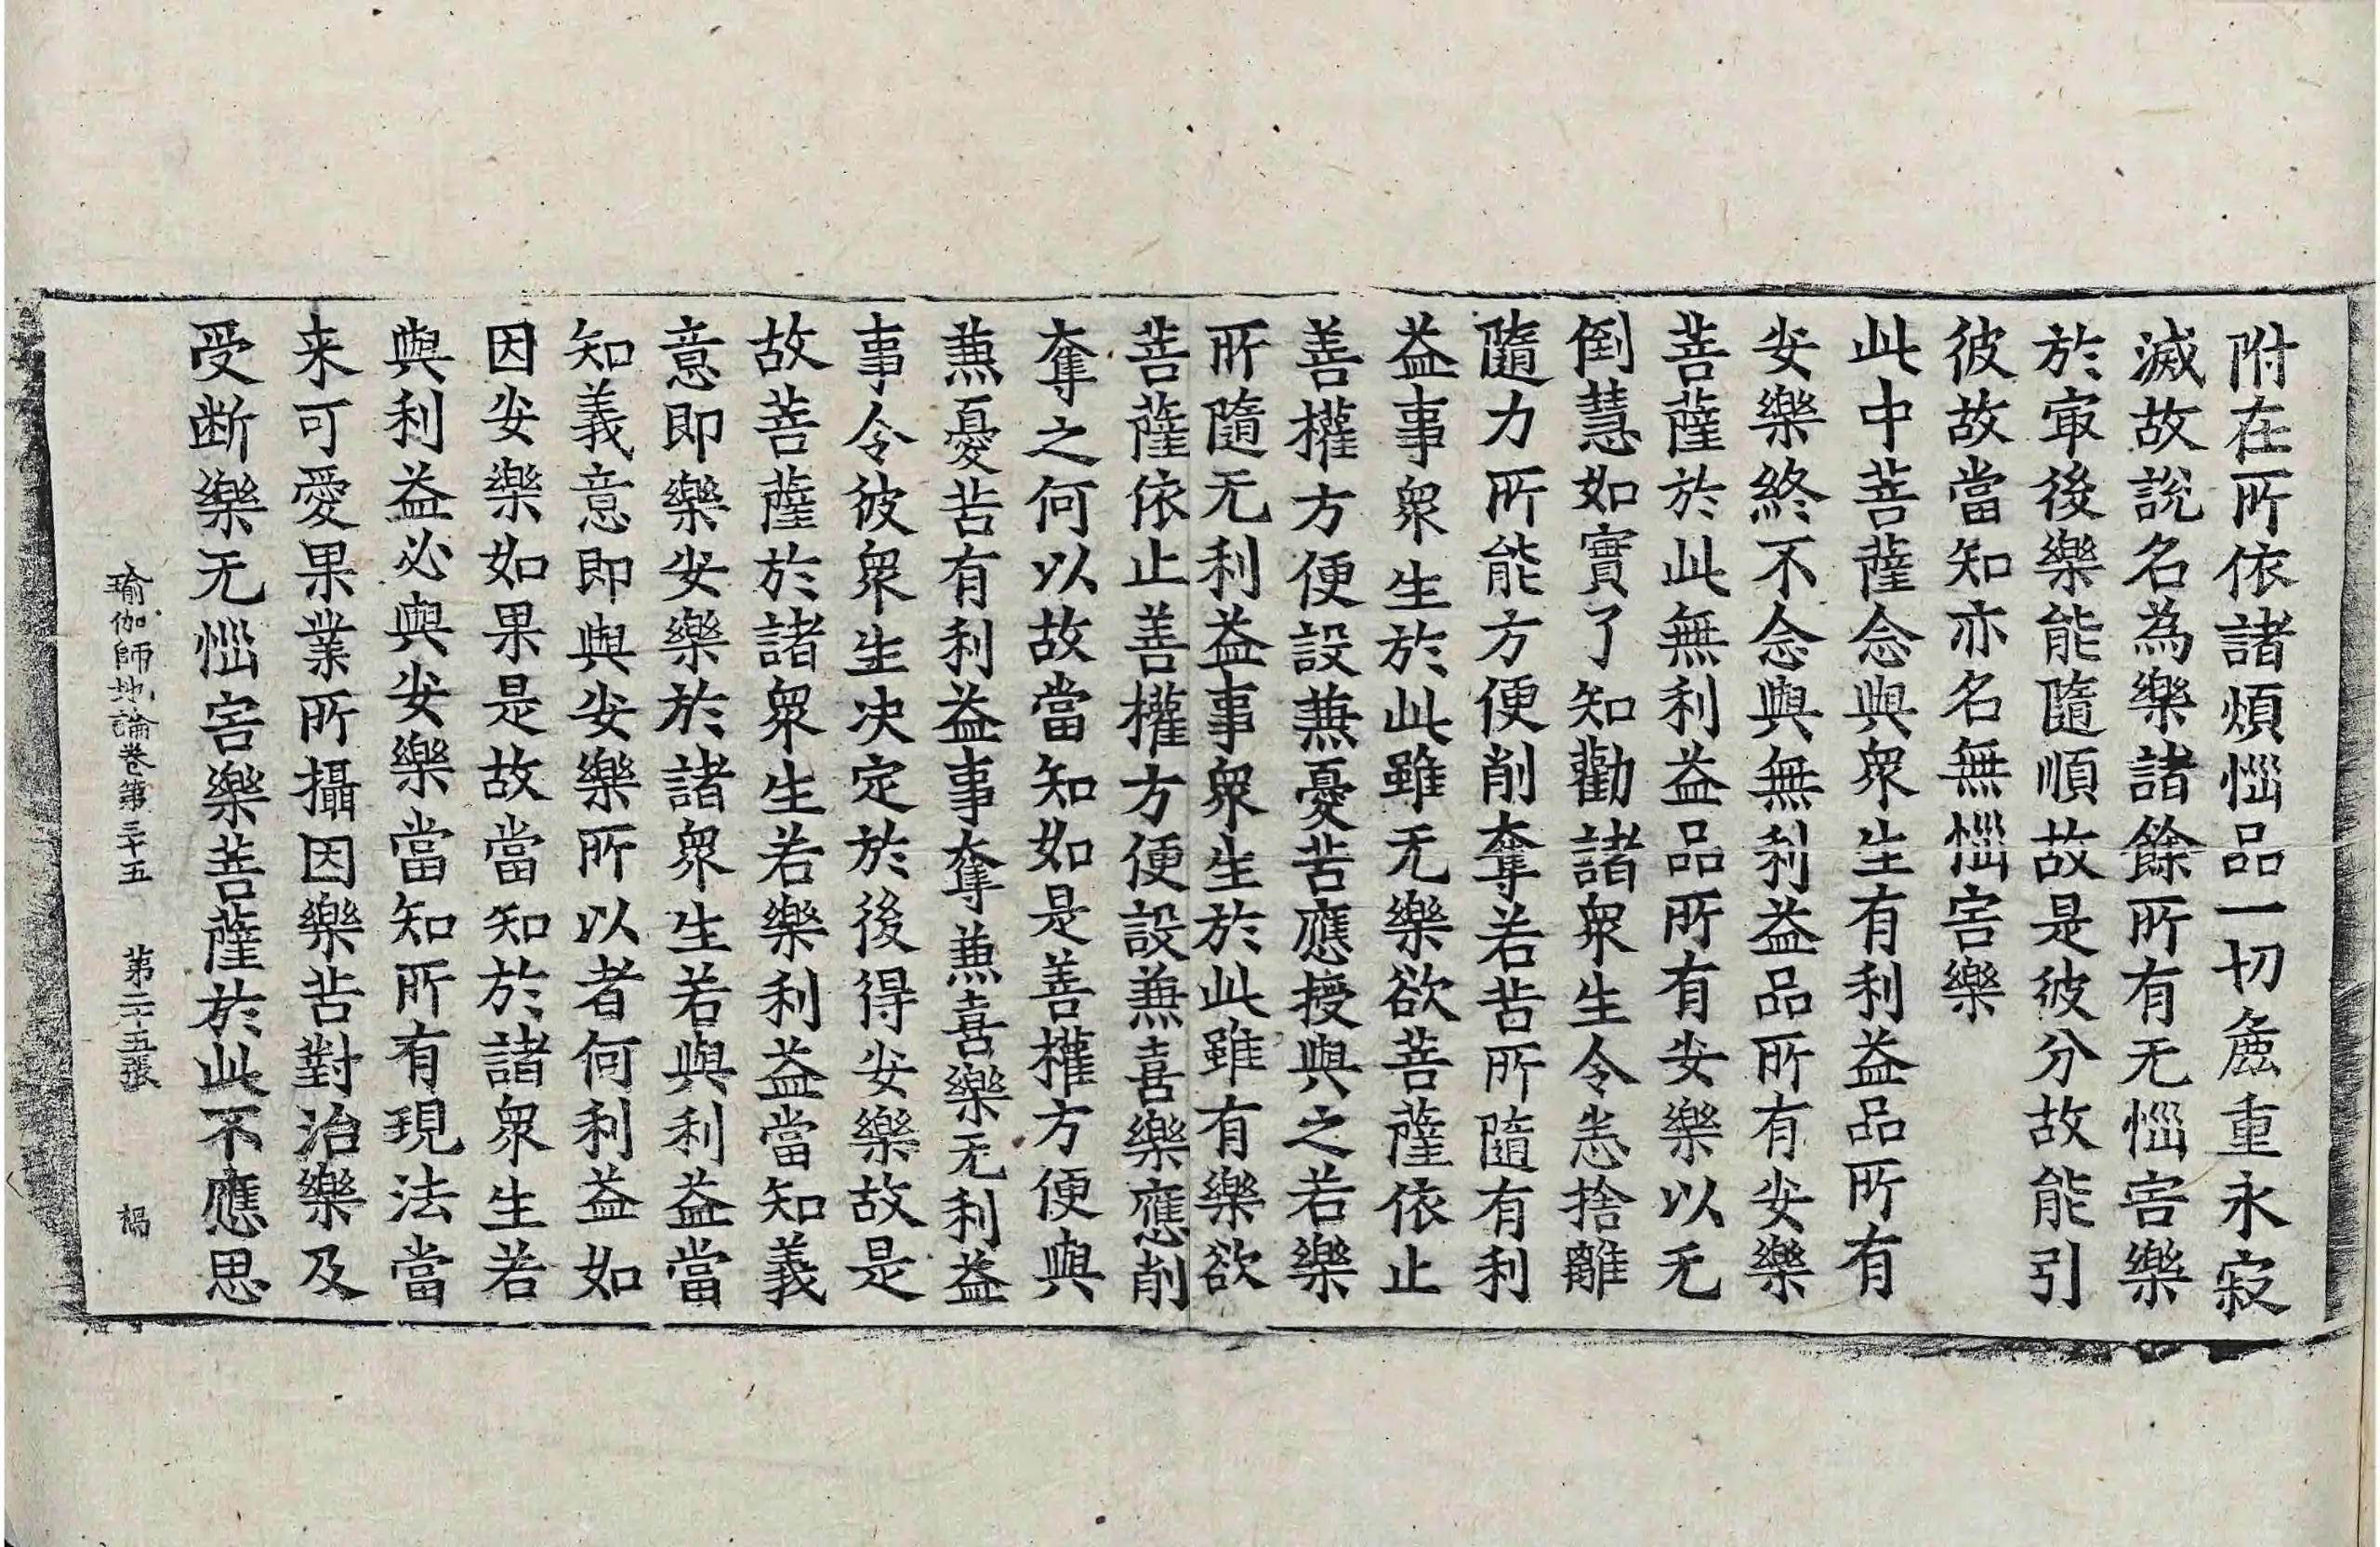 附在所依諸煩惱品一切麁重永寂
滅故說名為樂諸餘所有无惱害樂
於㝡後樂能隨順故是彼分故能引
彼故當知亦名無惱害樂
此中菩薩念與衆生有利益品所有
安樂終不念與無利益品所有安樂
菩薩於此無利益品所有安樂以无
倒慧如實了知勸諸衆生令恙捨離
隨力所能方便削奪若苦所隨有利
益事衆生於此雖无樂欲菩薩依止
善權方便設兼憂苦應授與之若樂
所隨无利益事衆生於此雖有樂欲
菩薩依止善權方便設兼喜樂應削
奪之何以故當知如是善權方便與
兼憂苦有利益事奪兼喜樂无利益
事令彼衆生決定於後得安樂故是
故菩薩於諸衆生若樂利益當知義
意即樂安樂於諸衆生若與利益當
知義意即與安樂所以者何利益如
因安樂如果是故當知於諸衆生若
與利益必與安樂當知所有現法當
来可愛果業所攝因樂苦對治樂及
受断樂无惱害樂菩薩於此不應思
瑜伽師地論卷第三十五 第二十五張